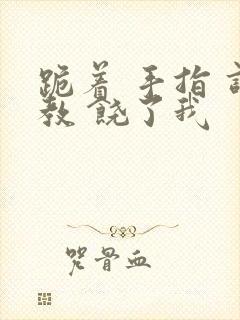 跪着 手指 调
教 饶了我
咒骨血